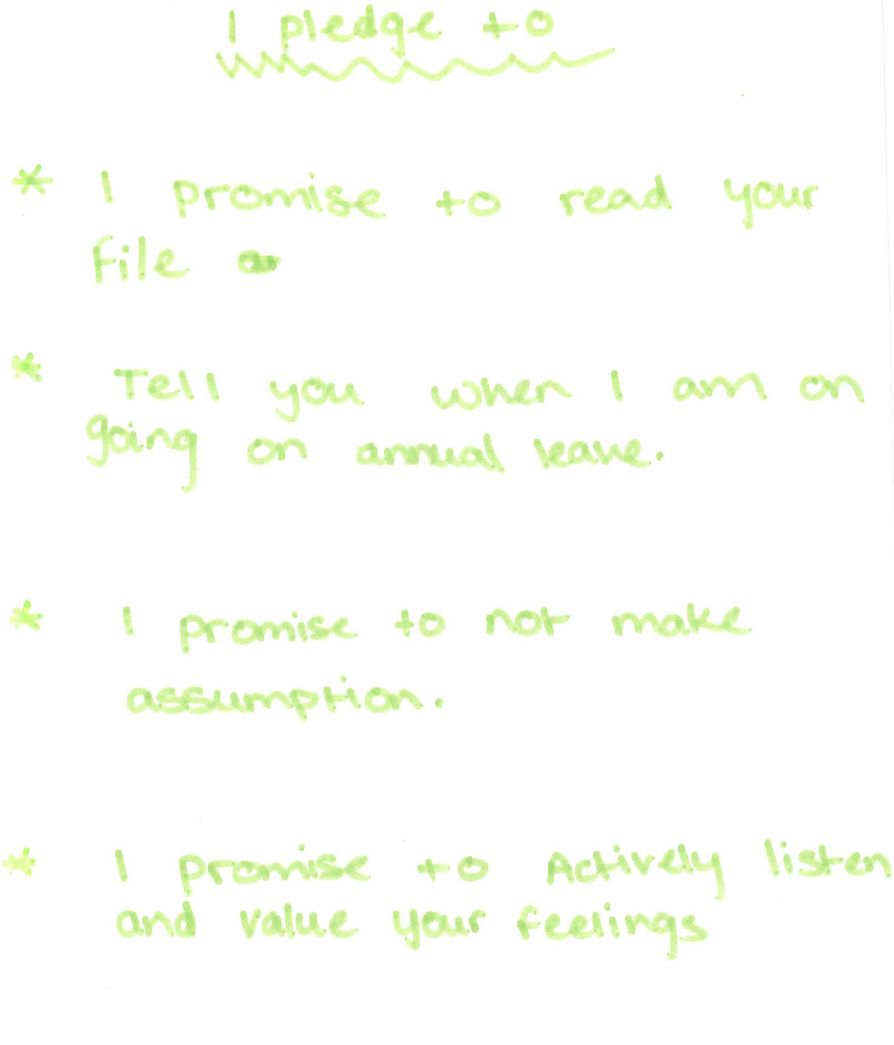 I pledge to
* I promise to read your
file
* Tell you when I am on
going on annual leave.
* I promise to not make
assumption.
* I promise to Actively listen
and value your feelings